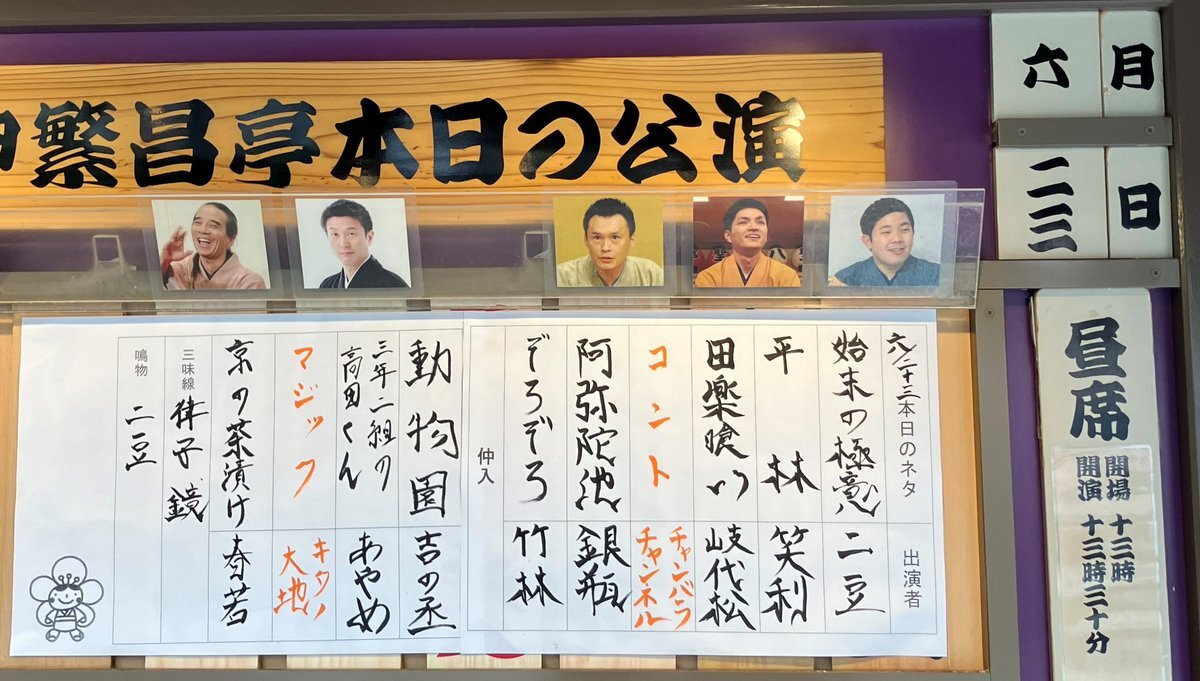 繁昌亭本日の公演
六月
二三日
昼席
開場 十三時
開演 十三時三十分
六/二十三 本日のネタ 出演者
始末の極意 二豆
平林 笑利
田楽喰い 岐代松
コント チャンバラチャンネル
阿弥陀池 銀瓶
ぞろぞろ 竹林
仲入
動物園 吉の丞
三年二組の高田くん あやめ
マジック キタノ大地
京の茶漬け 春若
三味線 律子 鏡
鳴物 二豆